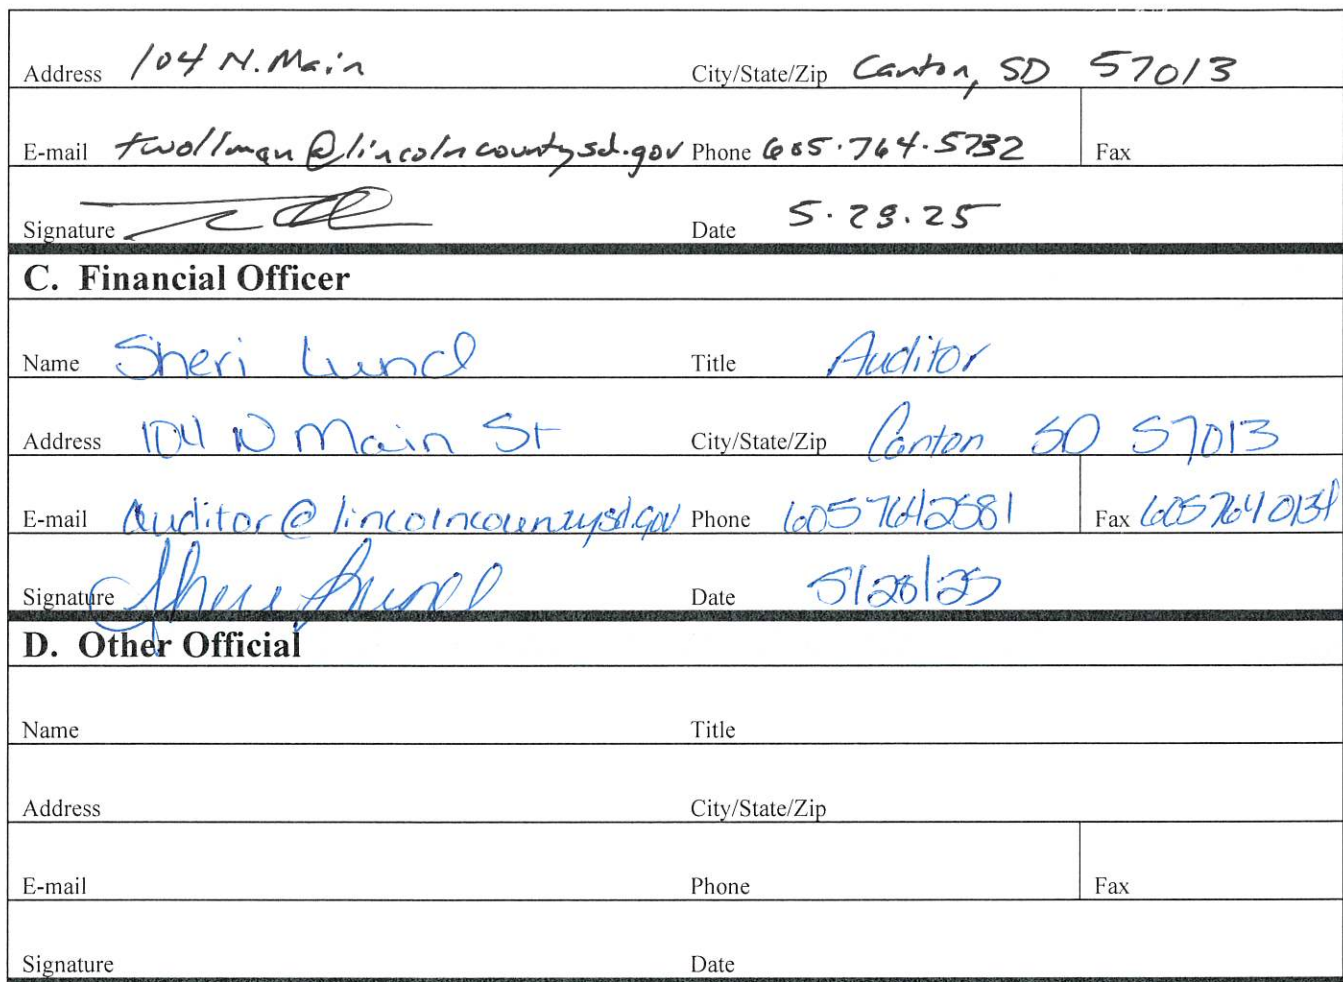 Address 104 N. Main City/State/Zip Canton, SD 57013
E-mail twollman@lincolncountysd.gov Phone 605.764.5732 Fax
Signature Date 5.28.25
C. Financial Officer
Name Sheri Lund Title Auditor
Address 104 N Main St City/State/Zip Canton SD 57013
E-mail auditor@lincolncountysd.gov Phone 6057642581 Fax 6057640134
Signature Sheri Lund Date 5/28/25
D. Other Official
Name Title
Address City/State/Zip
E-mail Phone Fax
Signature Date